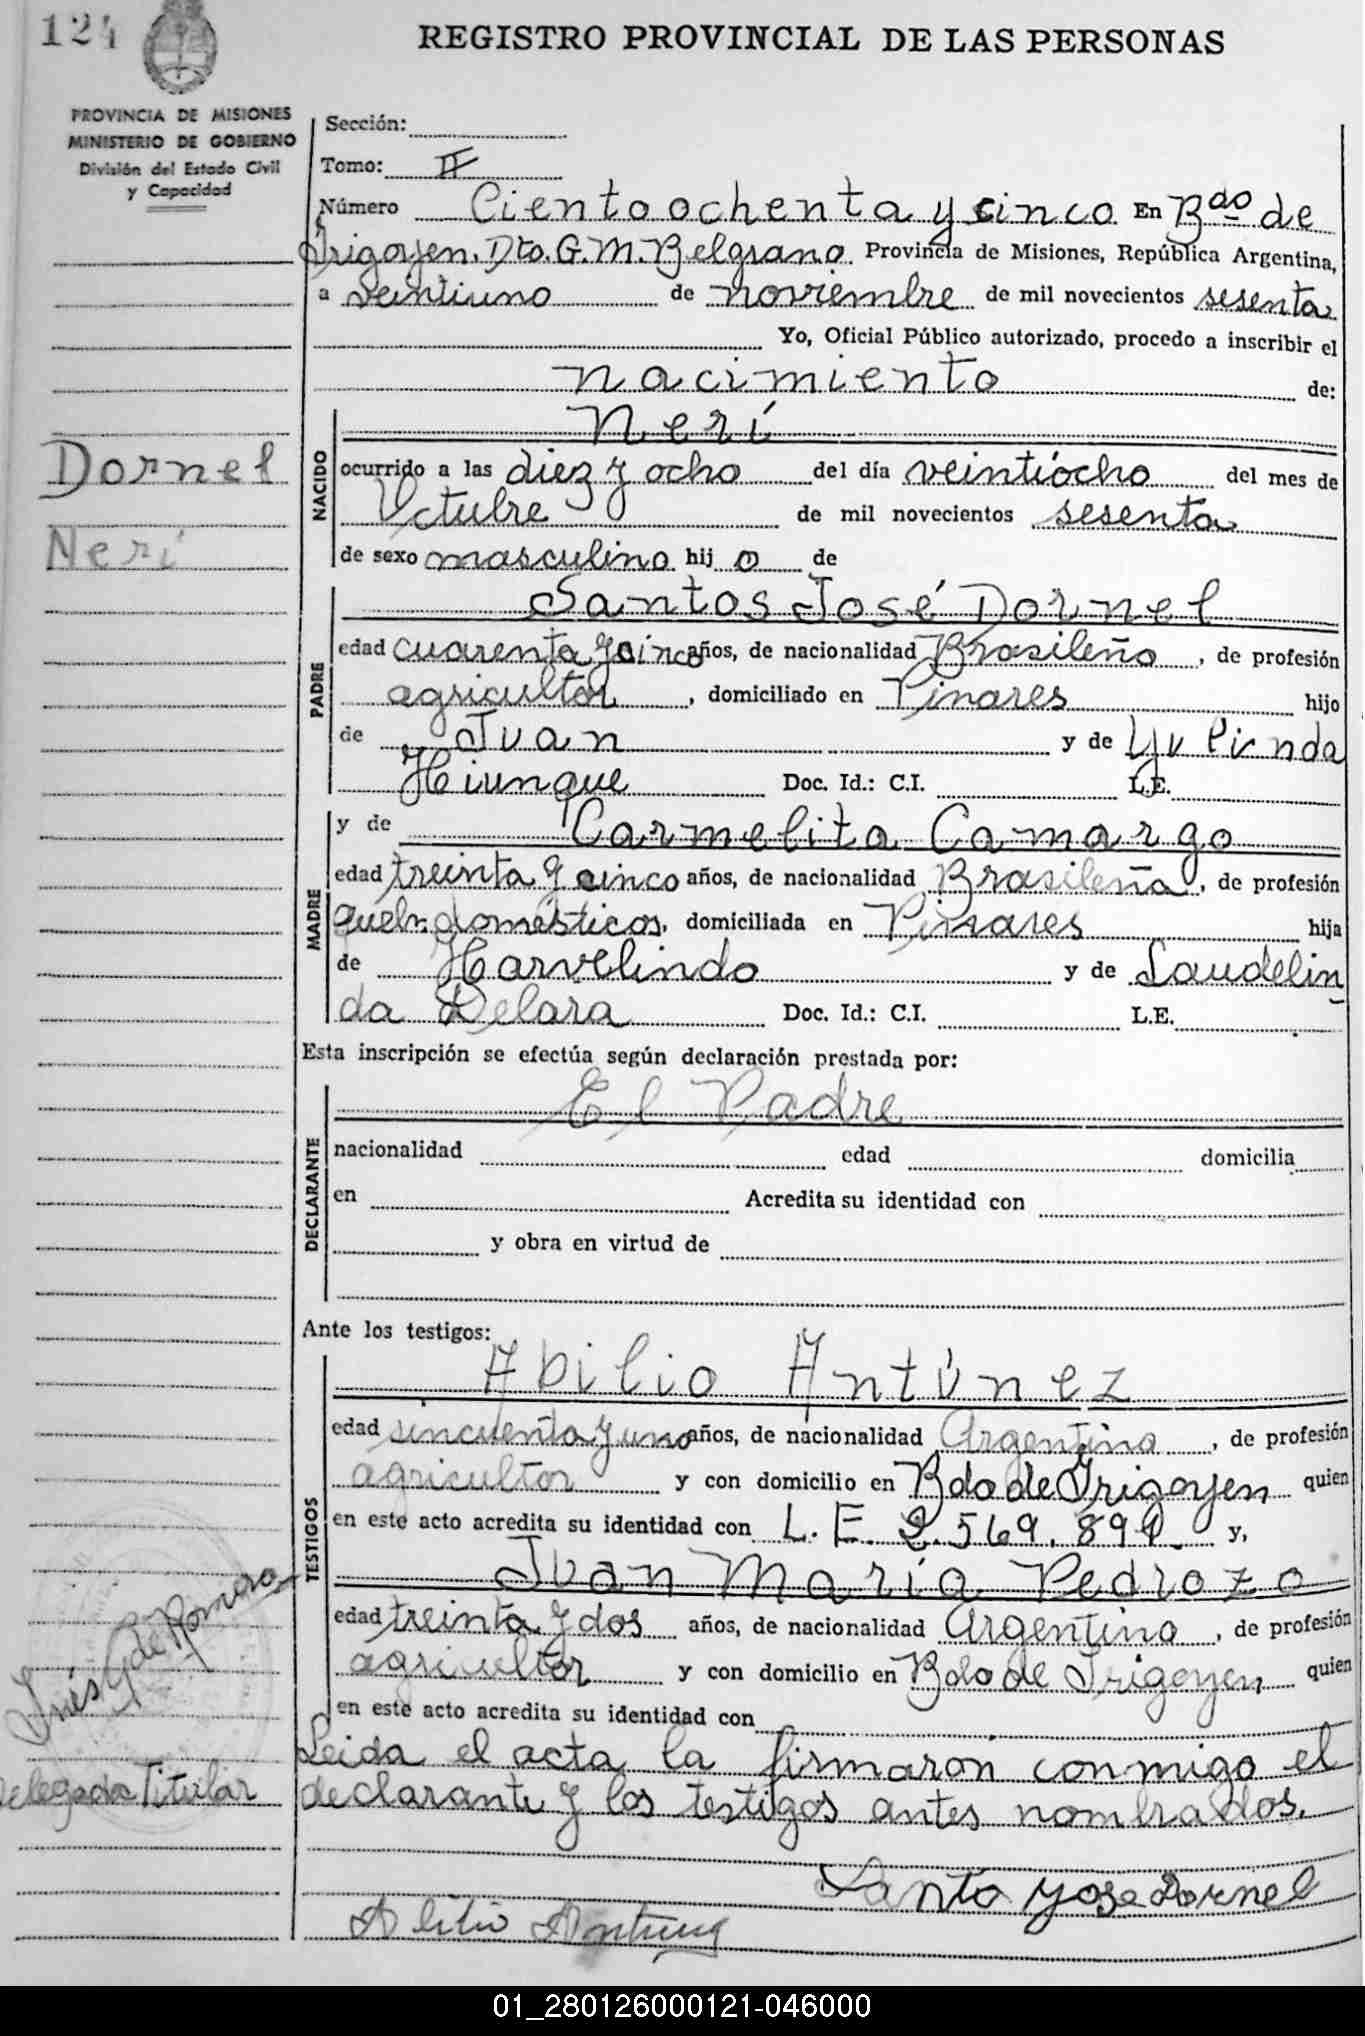 124
REGISTRO PROVINCIAL DE LAS PERSONAS
PROVINCIA DE MISIONES
MINISTERIO DE GOBIERNO
División del Estado Civil
y Capacidad
Sección:
Tomo: II
Número Ciento ochenta y cinco En Bdo de
Irigoyen. Dto. G. M. Belgrano. Provincia de Misiones, República Argentina,
a veintiuno de noviembre de mil novecientos sesenta
Yo, Oficial Público autorizado, procedo a inscribir el
nacimiento de:
Dornel
Nerí
NACIDO
Nerí
ocurrido a las diez y ocho del día veintiocho del mes de
Octubre de mil novecientos sesenta
de sexo masculino hijo de
PADRE
Santos José Dornel
edad cuarenta y cinco años, de nacionalidad Brasileño, de profesión
agricultor, domiciliado en Pinares hijo
de Juan y de
Doc. Id.: C.I. L.E.
MADRE
y de Carmelita Camargo
edad treinta y cinco años, de nacionalidad Brasileña, de profesión
queh. domésticos, domiciliada en Pinares hija
de Harvelindo y de Laudelin
da Delara Doc. Id.: C.I. L.E.
Esta inscripción se efectúa según declaración prestada por:
DECLARANTE
El Padre
nacionalidad edad domicilia
en Acredita su identidad con
y obra en virtud de
Ante los testigos:
TESTIGOS
Abilio Antúnez
edad sincuenta y uno años, de nacionalidad Argentino, de profesión
agricultor y con domicilio en Bdo de Irigoyen quien
en este acto acredita su identidad con L. E. 2.569.891 y,
Juan María Pedrozo
edad treinta y dos años, de nacionalidad Argentino, de profesión
agricultor y con domicilio en Bdo de Irigoyen, quien
en este acto acredita su identidad con
Leida el acta la firmaron conmigo el
declarante y los testigos antes nombrados.
Inés G de Romero
Delegada Titular
Santo Yose Dornel
Abilio Antunez
01_280126000121-046000